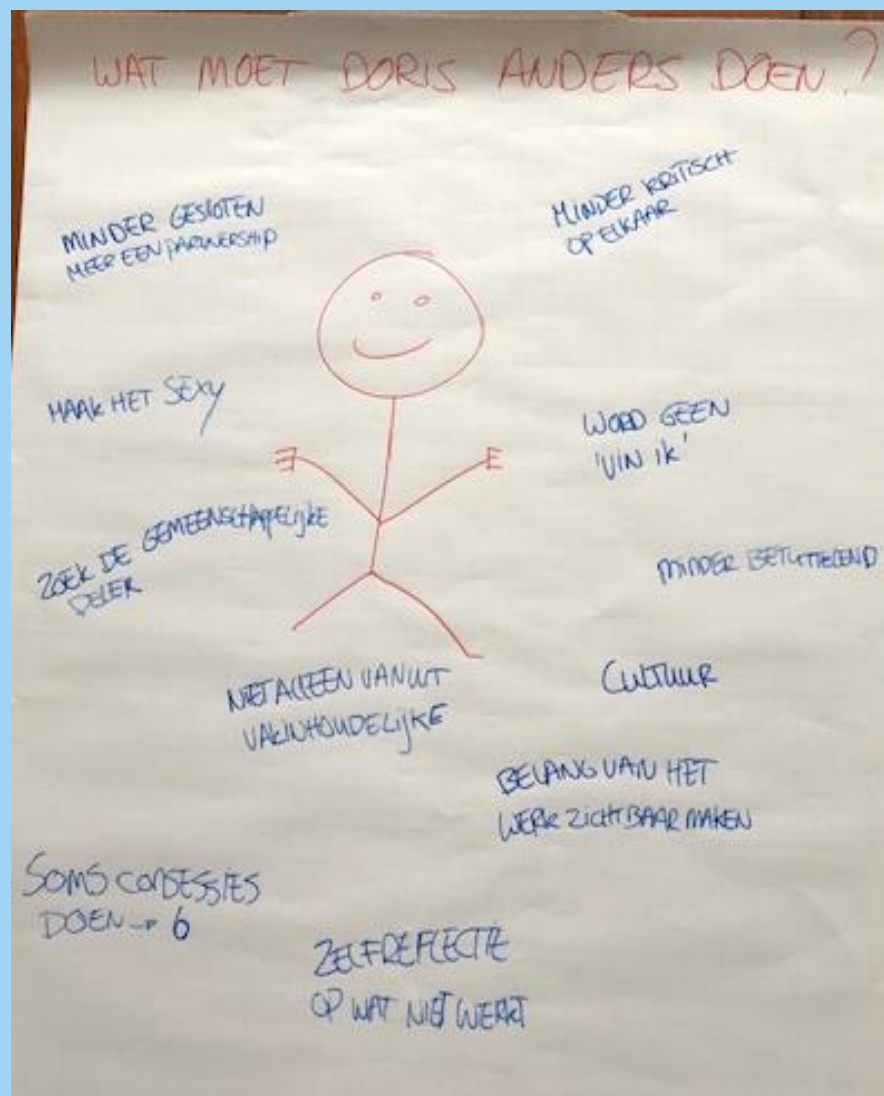 WAT MOET DORIS ANDERS DOEN?
MINDER GESLOTEN
MEER EEN PARTNERSHIP
MINDER KRITISCH
OP ELKAAR
MAAK HET SEXY
WORD GEEN
'VIN IK'
ZOEK DE GEMEENSCHAPPELIJKE
DELER
MINDER BETUTTELEND
NIET ALLEEN VANUIT
VAKINHOUDELIJKE
CULTUUR
BELANG VAN HET
WERK ZICHTBAAR MAKEN
SOMS CONSESSIES
DOEN → 6
ZELFREFLECTIE
OP WAT NIET WERKT